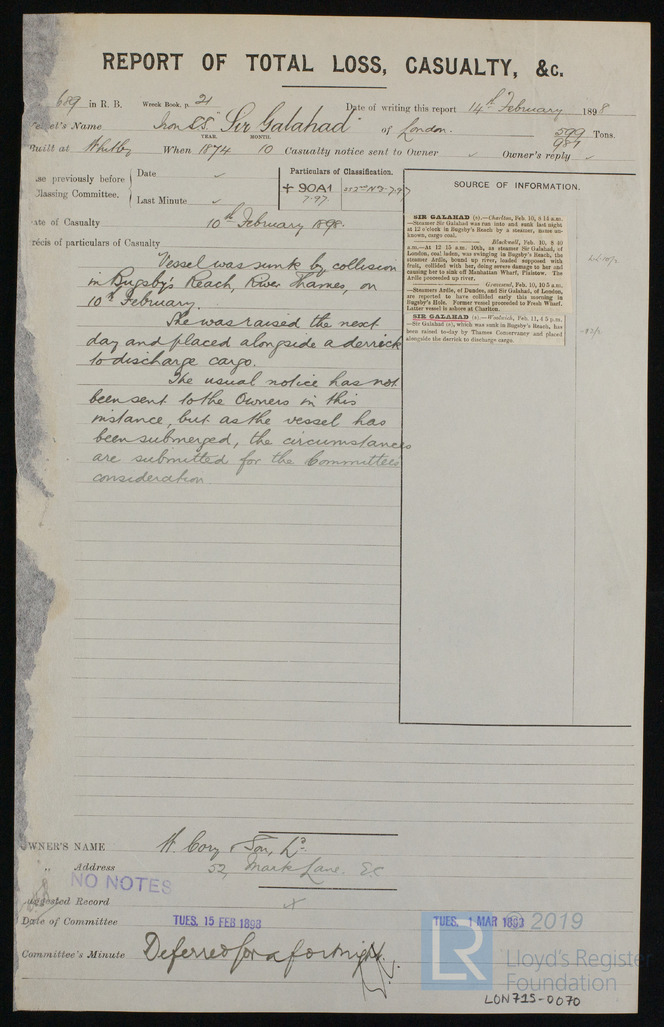 REPORT OF TOTAL LOSS, CASUALTY, &c.
689 in R. B. Wreck Book, p. 21 Date of writing this report 14th February 1898
Vessel's Name Iron S.S. "Sir Galahad" of London. 599 Tons.
987
YEAR. MONTH.
Built at Whitby When 1874 10 Casualty notice sent to Owner ✓ Owner's reply ✓
previously before
Classing Committee.
Date ✓
Last Minute ✓
Particulars of Classification.
+ 90A1
7.97.
SOURCE OF INFORMATION.
Date of Casualty 10th February 1898.
Précis of particulars of Casualty
Vessel was sunk by collision
in Bugsby's Reach, River Thames, on
10th February.
She was raised the next
day and placed alongside a derrick
to discharge cargo.
The usual notice has not
been sent to the Owners in this
instance, but as the vessel has
been submerged, the circumstances
are submitted for the Committee's
consideration.
SIR GALAHAD (s).—Charlton, Feb. 10, 8 14 a.m.
—Steamer Sir Galahad was run into and sunk last night
at 12 o'clock in Bugsby's Reach by a steamer, name un-
known, cargo coal.
Blackwall, Feb. 10, 8 40
a.m.—At 12 15 a.m. 10th, as steamer Sir Galahad, of
London, coal laden, was swinging in Bugsby's Reach, the
steamer Ardle, bound up river, loaded supposed with
fruit, collided with her, doing severe damage to her and
causing her to sink off Manhattan Wharf, Plaistow. The
Ardle proceeded up river.
Gravesend, Feb. 10, 10 5 a.m.
—Steamers Ardle, of Dundee, and Sir Galahad, of London,
are reported to have collided early this morning in
Bugsby's Hole. Former vessel proceeded to Fresh Wharf.
Latter vessel is ashore at Charlton.
SIR GALAHAD (s).—Woolwich, Feb. 11, 4 5 p.m.
—Sir Galahad (s), which was sunk in Bugsby's Reach, has
been raised to-day by Thames Conservancy and placed
alongside the derrick to discharge cargo.
OWNER'S NAME W. Cory & Son, Ld.
" Address 52, Mark Lane. E.C.
NO NOTES
Suggested Record
Date of Committee TUES. 15 FEB 1898 TUES. 1 MAR 1898
Committee's Minute Deferred for a fortnight.
LR © 2019
Lloyd's Register
Foundation
LON715-0070